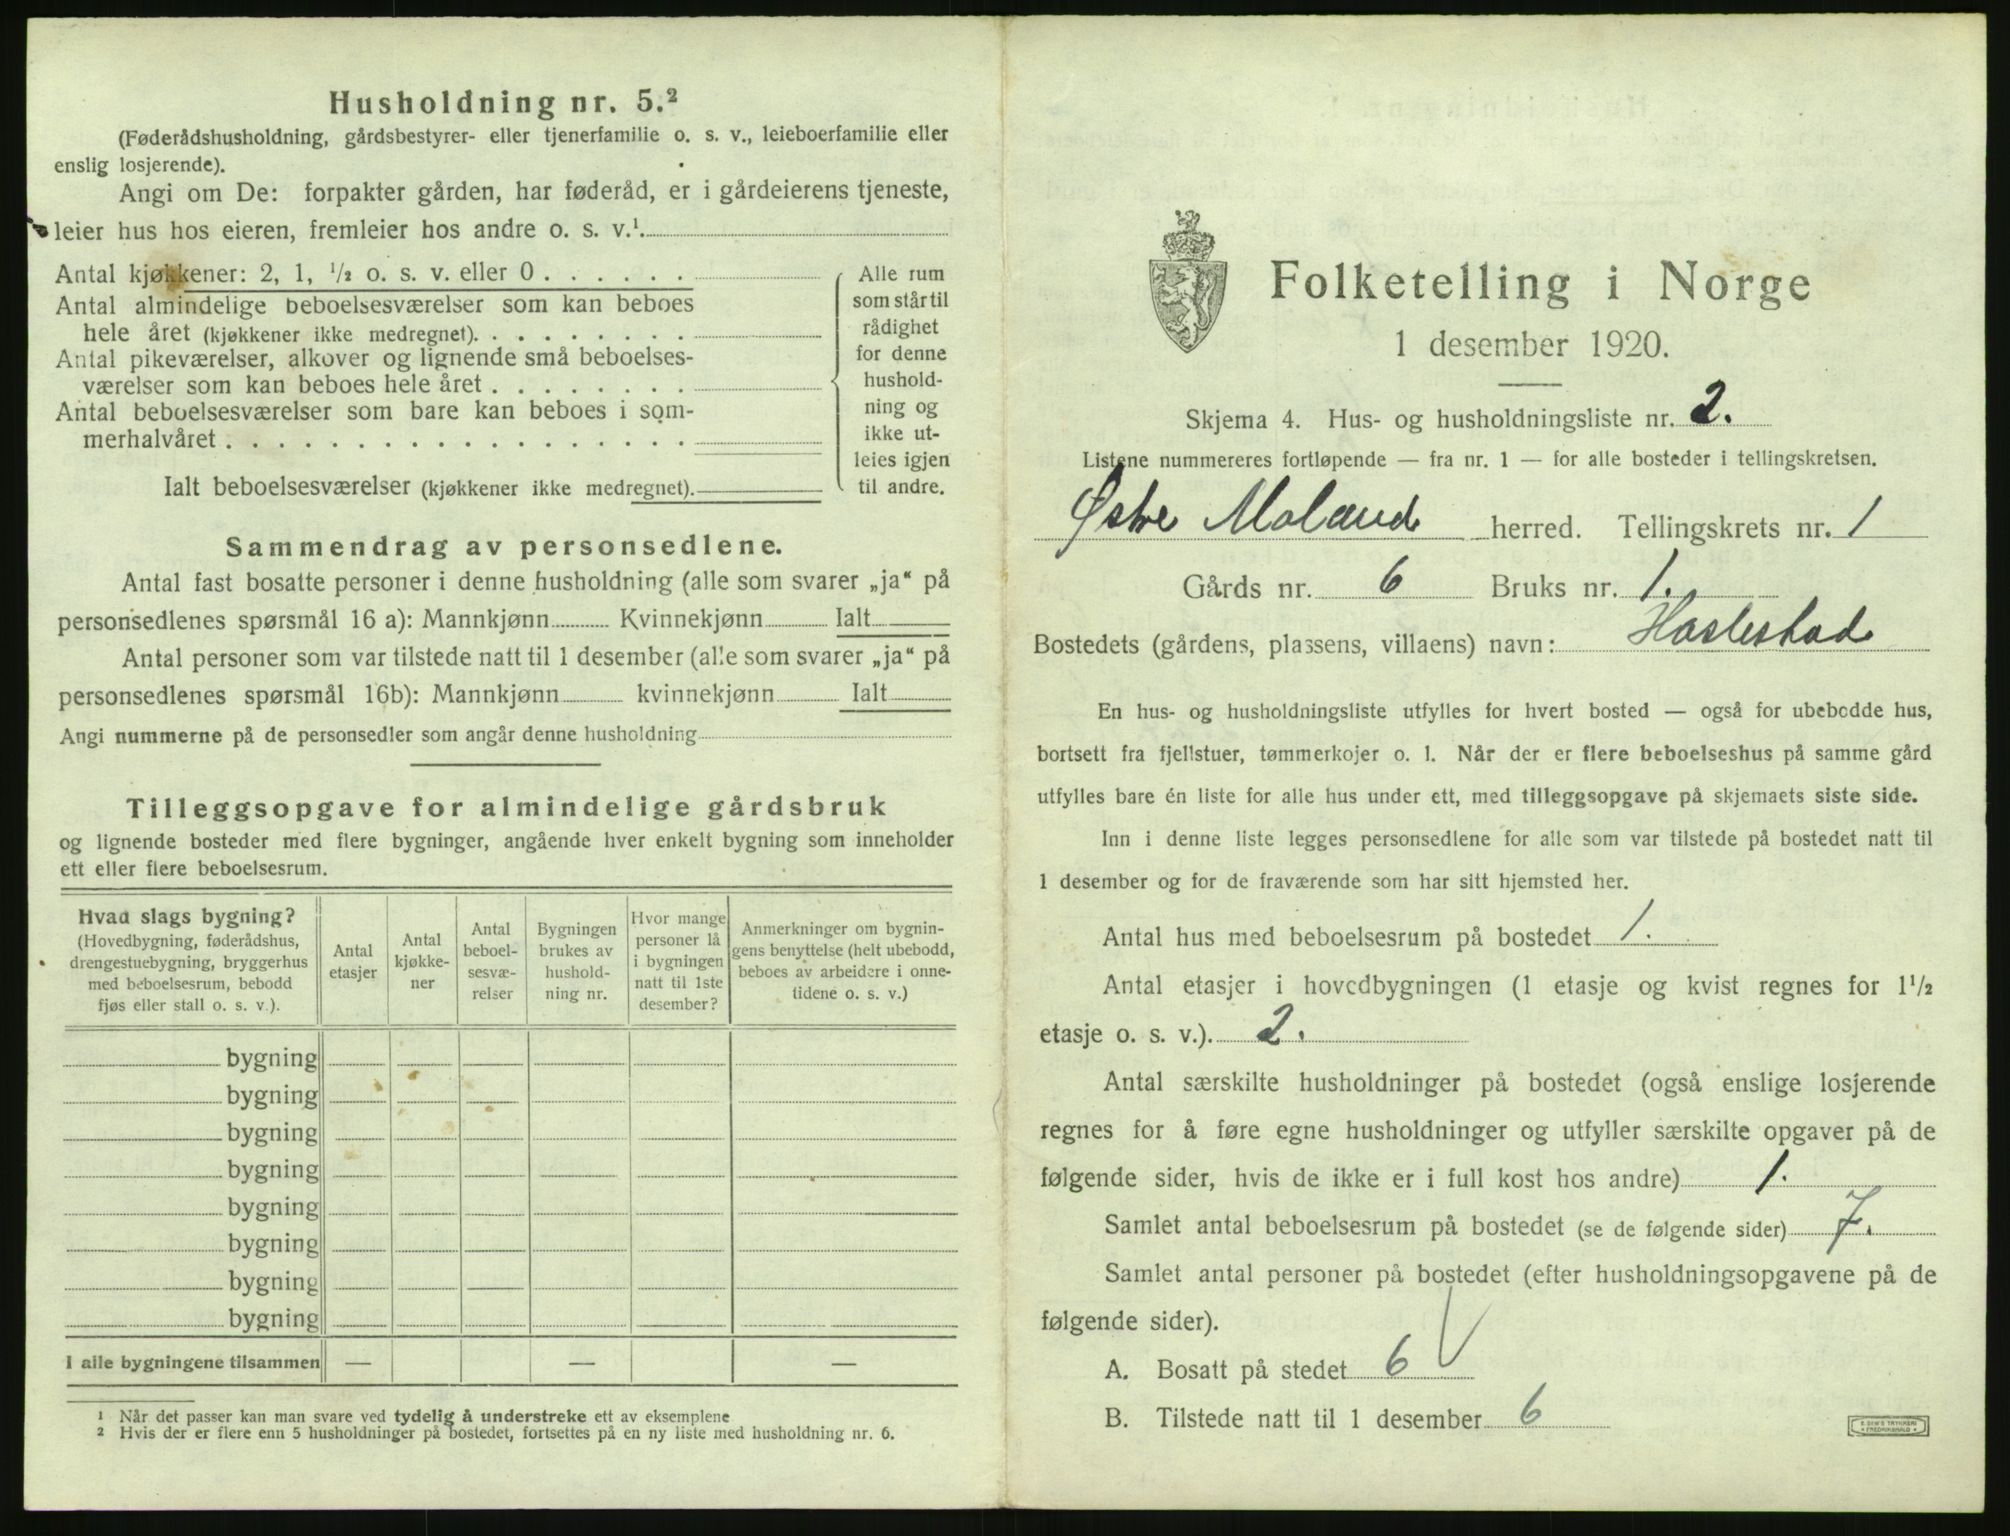 Husholdning nr. 5.²
(Føderådshusholdning, gårdsbestyrer- eller tjenerfamilie o. s. v., leieboerfamilie eller
enslig losjerende).
Angi om De: forpakter gården, har føderåd, er i gårdeierens tjeneste,
leier hus hos eieren, fremleier hos andre o. s. v.¹
Antal kjøkkener: 2, 1, ½ o. s. v. eller 0 . . . . . .
Antal almindelige beboelsesværelser som kan beboes
hele året (kjøkkener ikke medregnet). . . . . . . . .
Antal pikeværelser, alkover og lignende små beboelses-
værelser som kan beboes hele året . . . . . . . .
Antal beboelsesværelser som bare kan beboes i som-
merhalvåret . . . . . . . . . . . . . . . . . .
Ialt beboelsesværelser (kjøkkener ikke medregnet).
Alle rum
som står til
rådighet
for denne
hushold-
ning og
ikke ut-
leies igjen
til andre.
Sammendrag av personsedlene.
Antal fast bosatte personer i denne husholdning (alle som svarer „ja“ på
personsedlenes spørsmål 16 a): Mannkjønn Kvinnekjønn Ialt
Antal personer som var tilstede natt til 1 desember (alle som svarer „ja“ på
personsedlenes spørsmål 16b): Mannkjønn kvinnekjønn Ialt
Angi nummerne på de personsedler som angår denne husholdning
Tilleggsopgave for almindelige gårdsbruk
og lignende bosteder med flere bygninger, angående hver enkelt bygning som inneholder
ett eller flere beboelsesrum.
Hvad slags bygning?
(Hovedbygning, føderådshus,
drengestuebygning, bryggerhus
med beboelsesrum, bebodd
fjøs eller stall o. s. v.).
Antal
etasjer
Antal
kjøkke-
ner
Antal
beboel-
sesvæ-
relser
Bygningen
brukes av
hushold-
ning nr.
Hvor mange
personer lå
i bygningen
natt til 1ste
desember?
Anmerkninger om bygnin-
gens benyttelse (helt ubebodd,
beboes av arbeidere i onne-
tidene o. s. v.)
bygning
bygning
bygning
bygning
bygning
bygning
bygning
bygning
I alle bygningene tilsammen — — —
¹ Når det passer kan man svare ved tydelig å understreke ett av eksemplene
² Hvis der er flere enn 5 husholdninger på bostedet, fortsettes på en ny liste med husholdning nr. 6.
Folketelling i Norge
1 desember 1920.
Skjema 4. Hus- og husholdningsliste nr. 2.
Listene nummereres fortløpende — fra nr. 1 — for alle bosteder i tellingskretsen.
Østre Moland herred. Tellingskrets nr. 1
Gårds nr. 6 Bruks nr. 1.
Bostedets (gårdens, plassens, villaens) navn: Haslestad
En hus- og husholdningsliste utfylles for hvert bosted — også for ubebodde hus,
bortsett fra fjellstuer, tømmerkojer o. l. Når der er flere beboelseshus på samme gård
utfylles bare én liste for alle hus under ett, med tilleggsopgave på skjemaets siste side.
Inn i denne liste legges personsedlene for alle som var tilstede på bostedet natt til
1 desember og for de fraværende som har sitt hjemsted her.
Antal hus med beboelsesrum på bostedet 1.
Antal etasjer i hovedbygningen (1 etasje og kvist regnes for 1½
etasje o. s. v.). 2.
Antal særskilte husholdninger på bostedet (også enslige losjerende
regnes for å føre egne husholdninger og utfyller særskilte opgaver på de
følgende sider, hvis de ikke er i full kost hos andre) 1.
Samlet antal beboelsesrum på bostedet (se de følgende sider) 7.
Samlet antal personer på bostedet (efter husholdningsopgavene på de
følgende sider).
A. Bosatt på stedet 6
B. Tilstede natt til 1 desember 6